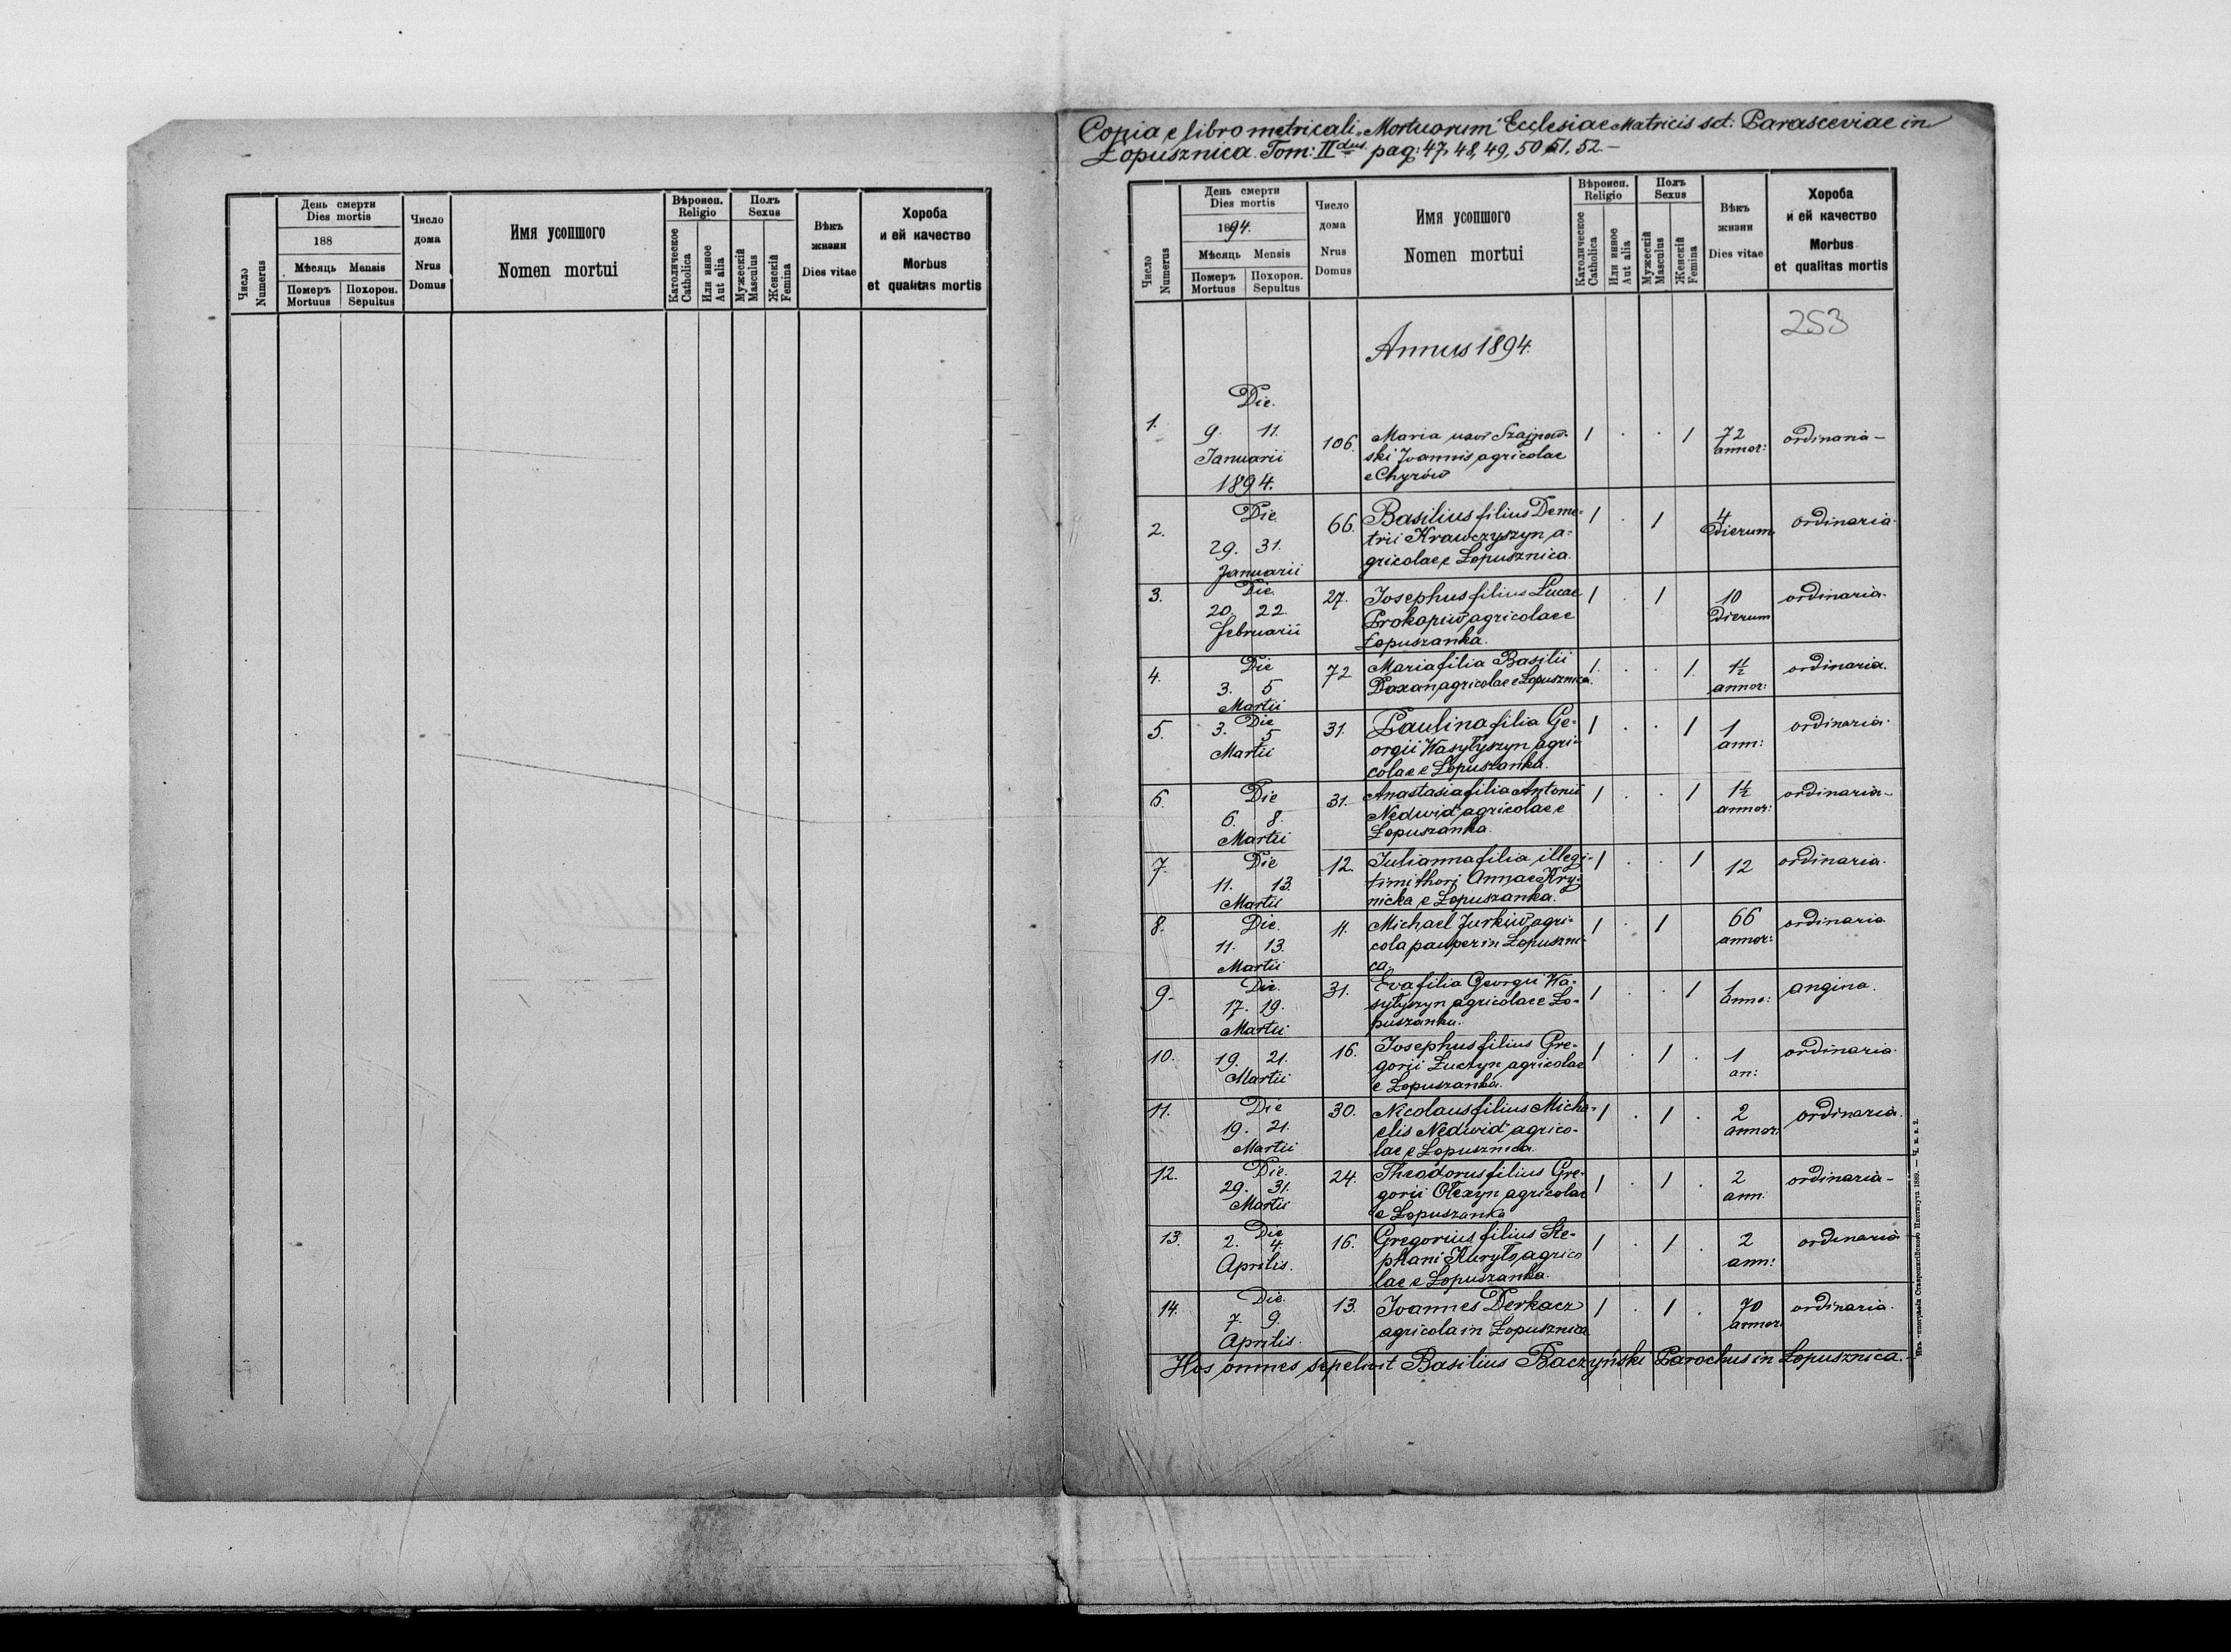 Число Numerus
День смерти
Dies mortis
188
Мѣсяць Mensis
Померъ Mortuus
Похорон. Sepultus
Число дома
Nrus Domus
Имя усопшого
Nomen mortui
Вѣроисп.
Religio
Католическое Catholica
Или инное Aut alia
Полъ
Sexus
Мужескій Masculus
Женскій Femina
Вѣкъ жизни
Dies vitae
Хороба
и ей качество
Morbus
et qualitas mortis
Copia e libro metricali „Mortuorum" Ecclesiae Matricis sct: Parasceviae in
Łopusznica. Tom: II dus. pag: 47, 48, 49, 50 51, 52.–
Число Numerus
День смерти
Dies mortis
1894.
Мѣсяць Mensis
Померъ Mortuus
Похорон. Sepultus
Число дома
Nrus Domus
Имя усопшого
Nomen mortui
Вѣроисп.
Religio
Католическое Catholica
Или инное Aut alia
Полъ
Sexus
Мужескій Masculus
Женскій Femina
Вѣкъ жизни
Dies vitae
Хороба
и ей качество
Morbus
et qualitas mortis
253
Annus 1894.
Die.
1. 9. 11. 106. Maria uxor Szajnow- 1 . . 1 72 ordinaria –
Januarii ski Joannis agricolae annor:
1894. e Chyrów
2. Die 66. Basilius filius Deme- 1 . 1 4 ordinaria.
29. 31. trii Krawczyszyn a- dierum
Januarii gricolae e Łopusznica.
3. Die 27. Josephus filius Lucae 1 . 1 10 ordinaria.
20. 22. Prokopiw agricolae e dierum
Februarii Łopuszanka.
4. Die 72 Maria filia Basilii 1. . . 1. 1½ ordinaria.
3. 5 Daxan agricolae e Łopusznica. annor:
Martii
5. 3. Die 5 31. Paulina filia Ge- 1 . . 1 1 ordinaria.
Martii orgii Wasyłyszyn agri- ann:
colae e Łopuszanka.
6. Die 31. Anastasia filia Antonii 1 . . 1 1½ ordinaria –
6. 8. Nedwid agricolae e annor:
Martii Łopuszanka.
7. Die 12. Julianna filia illegi- 1 . . 1 12 ordinaria.
11. 13. timi thori Annae Kry-
Martii nicka e Łopuszanka.
8. Die. 11. Michael Jurkiw agri- 1 . 1 66 ordinaria
11. 13. cola pauper in Łopuszni- annor:
Martii ca.
9. Die. 31. Eva filia Georgii Wa- 1 . . 1 1 angina.
17. 19. syłyszyn agricolae e Ło- anno:
Martii puszanka.
10. 19. 21. 16. Josephus filius Gre- 1 . 1 . 1 ordinaria.
Martii gorii Łuczyn agricolae an:
e Łopuszanka.
11. Die 30. Nicolaus filius Micha- 1 . 1 . 2 ordinaria.
19. 21. elis Nedwid agrico- annor:
Martii lae e Łopusznica.
12. Die. 24. Theodorus filius Gre- 1 . 1 . 2 ordinaria –
29. 31. gorii Ołexyn agricolae ann.
Martii e Łopuszanka
13. 2. Die 4. 16. Gregorius filius Ste- 1 . 1 . 2 ordinaria
Aprilis. phani Kuryło agrico ann:
lae e Łopuszanka.
14. Die. 13. Joannes Derkacz 1 . 1 . 70 ordinaria.
7. 9. agricola in Łopusznica annor.
Aprilis.
Hos omnes sepelivit Basilius Baczyński Parochus in Łopusznica.–